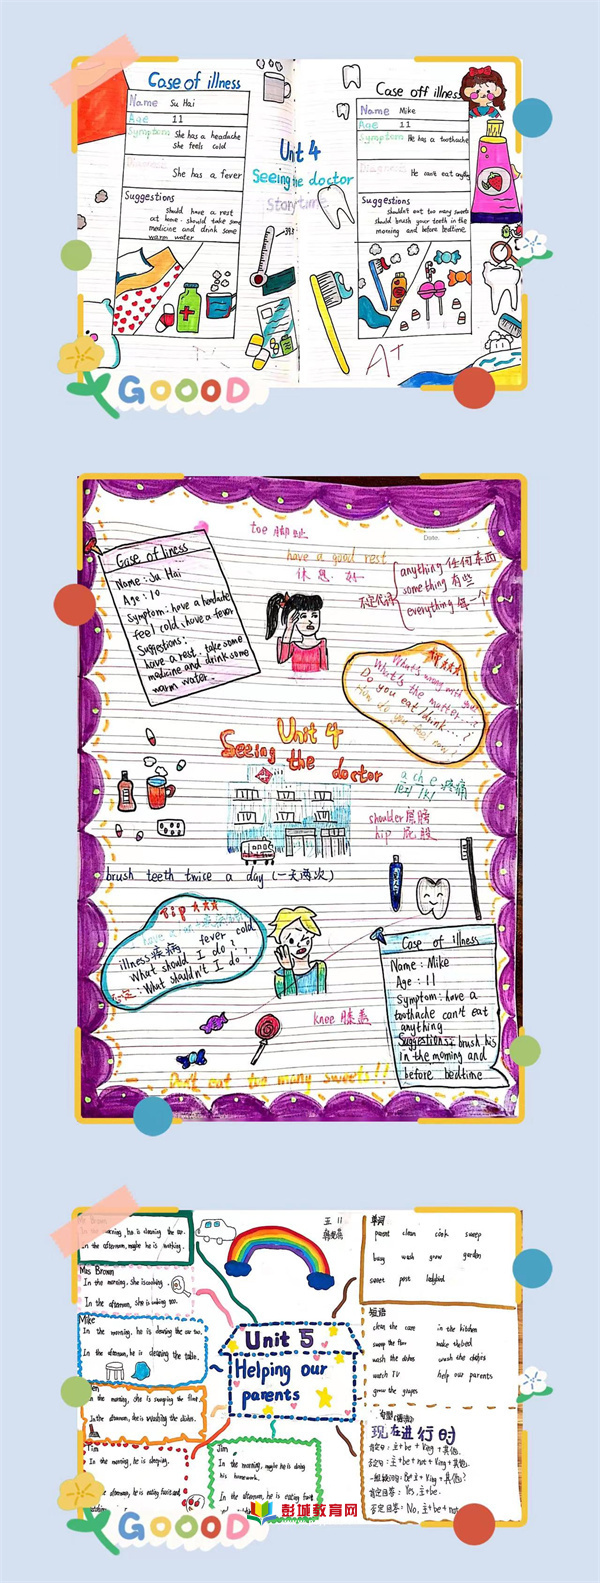 Case of illness
Name Su Hai
Age 11
Symptom She has a headache
She feels cold
She has a fever
Suggestions
should have a rest
at home. should take some
medicine and drink some
warm water
Unit 4
Seeing the doctor
Storytime
39.8
Case off illness
Name Mike
Age 11
Symptom He has a toothache
He can't eat anything
Suggestions
shouldn't eat too many sweets
should brush your teeth in the
morning and before bedtime.
A+
GOOOD
toe 脚趾
Date.
have a good rest
休息
不定代词
anything 任何东西
something 有些
everything 每一个
Case of liness
Name: Su Hai
Age: 10
Symptom: have a headache
feel cold, have a fever
Suggestions:
have a rest. take some
medicine and drink some
warm water
What's wrong with you?
What's the matter...?
Do you eat/drink...?
How do you feel now?
Unit 4
Seeing the doctor
ache 疼痛
shoulder 肩膀
hip 屁股
brush teeth twice a day (一天两次)
Tip
fever cold
illness 疾病
What should I do?
What shouldn't I do?
knee 膝盖
Case of illness
Name: Mike
Age: 11
Symptom: have a
toothache can't eat
anything
Suggestions: brush his
in the morning and
before bedtime
Don't eat too many sweets!!
In the afternoon, maybe he is working.
Mrs Brown
In the morning, she is cooking.
In the afternoon, she is cooking too.
Mike
In the morning, he is cleaning the car too.
In the afternoon, he is cleaning the table.
In the morning, she is sweeping the floor.
In the afternoon, he is washing the dishes.
Tim
In the morning, he is sleeping.
Unit 5
Helping our
parents
Jim
In the morning, maybe he is doing
his homework.
In the afternoon, he is eating fruit
单词
parent clean cook sweep
busy wash grow garden
sweet pest ladybird
短语
clean the car in the kitchen
sweep the floor make the bed
wash the dishes wash the clothes
watch TV help our parents
grow the grapes
现在进行时
肯定句：主+be+Ving+其他.
否定句：主+be+not+Ving+其他.
一般疑问句：Be+主+Ving+其他?
肯定回答：Yes, 主+be.
否定回答：No, 主+be+not
彭城教育网
GOOOD